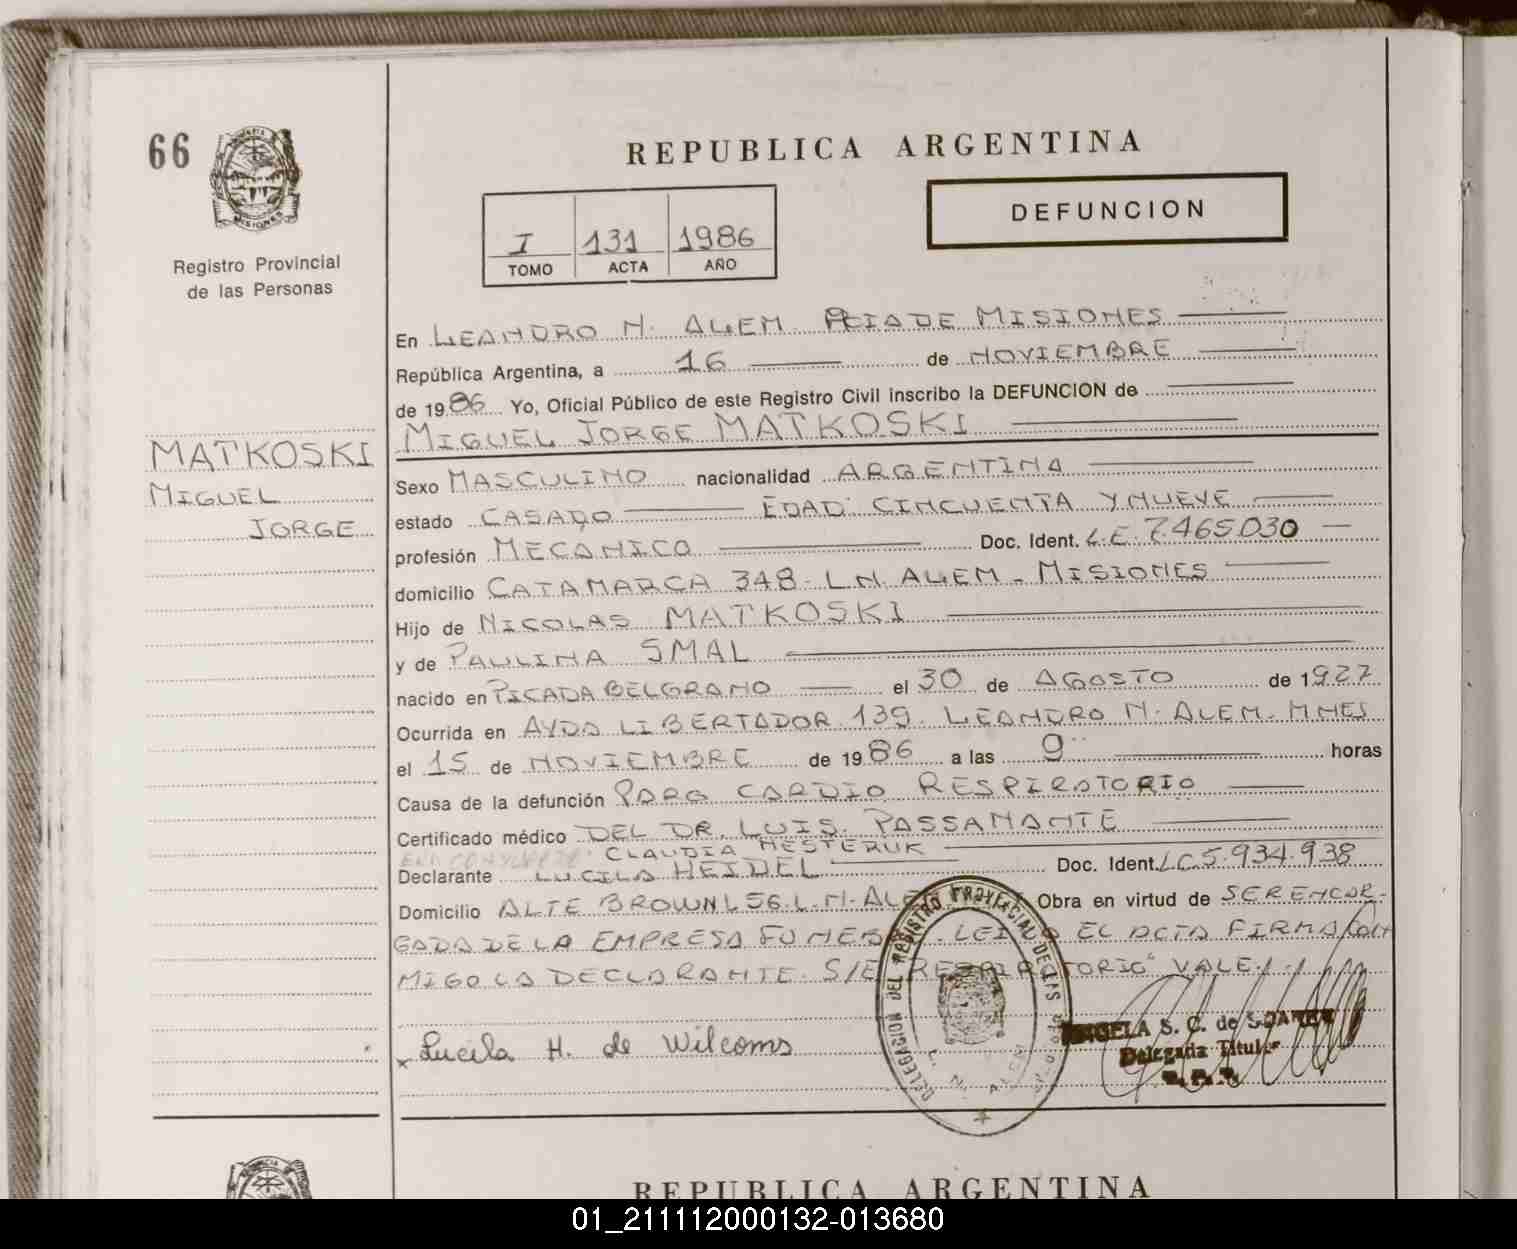 66
MISIONES
Registro Provincial
de las Personas
REPUBLICA ARGENTINA
I 131 1986
TOMO ACTA AÑO
DEFUNCION
MATKOSKI
MIGUEL
JORGE
En LEANDRO N. ALEM. PCIA DE MISIONES
República Argentina, a 16 de NOVIEMBRE
de 1986 Yo, Oficial Público de este Registro Civil inscribo la DEFUNCION de
MIGUEL JORGE MATKOSKI
Sexo MASCULINO nacionalidad ARGENTINA
estado CASADO EDAD: CINCUENTA Y NUEVE
profesión MECANICO Doc. Ident. L.E. 7.465.030
domicilio CATAMARCA 348 - L.N. ALEM - MISIONES
Hijo de NICOLAS MATKOSKI
y de PAULINA SMAL
nacido en PICADA BELGRANO el 30 de AGOSTO de 1927
Ocurrida en AVDA LIBERTADOR 139. LEANDRO N. ALEM. MNES
el 15 de NOVIEMBRE de 1986 a las 9 horas
Causa de la defunción PARO CARDIO RESPIRATORIO
Certificado médico DEL DR. LUIS. PASSAMANTE
CLAUDIA NESTERUK
Declarante LUCILA HEIDEL Doc. Ident. LC 5.934.938
Domicilio ALTE BROWN L56. L. N. ALEM Obra en virtud de SER ENCAR-
GADA DE LA EMPRESA FUNEB LEI EL ACTA FIRMA CON
MIGO LA DECLARANTE. S/E "RESPIRATORIO" VALE.
Lucila H. de Wilcoms
DELEGACION DEL REGISTRO PROVINCIAL DE LAS PERSONAS
L. N. ALEM
ANGELA S. C. de SUAREZ
Delegada Titular
REPUBLICA ARGENTINA
01_211112000132-013680